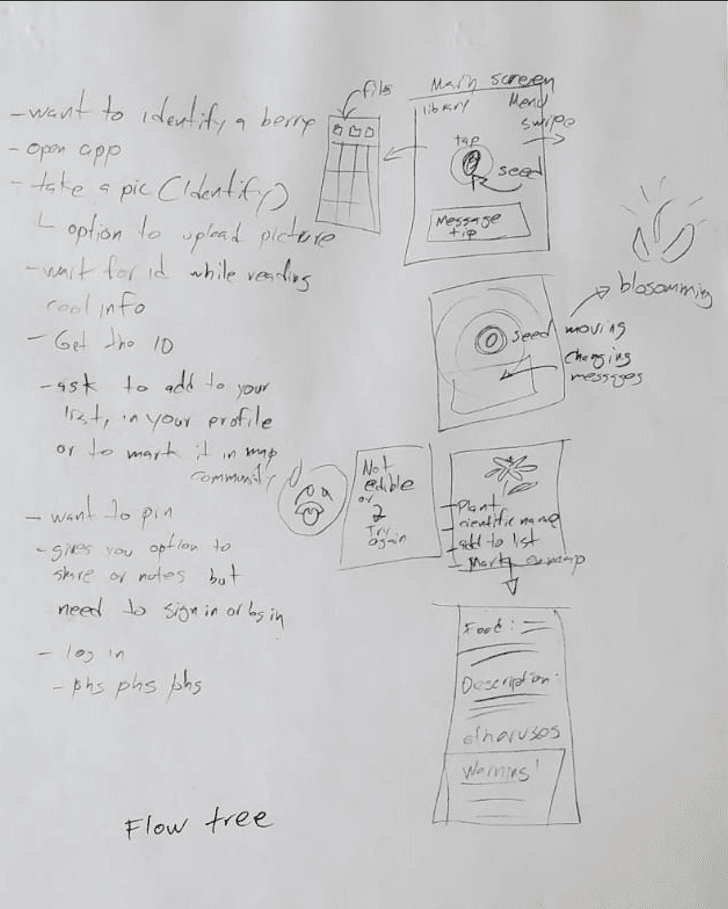 - want to identify a berry
- open app
- take a pic (Identify)
└ option to upload picture
- wait for id while reading
cool info
- Get the ID
- ask to add to your
list, in your profile
or to mark it in map
community
- want to pin
- gives you option to
share or notes but
need to sign in or log in
- log in
- phs phs phs
Flow tree
file
Main screen
library
Menu
swipe
tap
seed
Message
tip
seed moving
changing
messages
blosomming
Not
edible
or
2
Try
again
- Plant
- cientific name
- add to list
- Mark on map
Food:
Description:
other uses
Warnings!